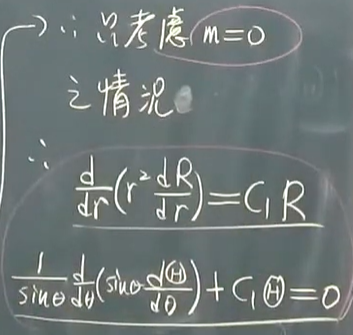 →∵只考慮 m=0
之情況
∴
d/dr(r² dR/dr)=C₁R
1/sinθ d/dθ(sinθ dⒽ/dθ)+C₁Ⓗ=0